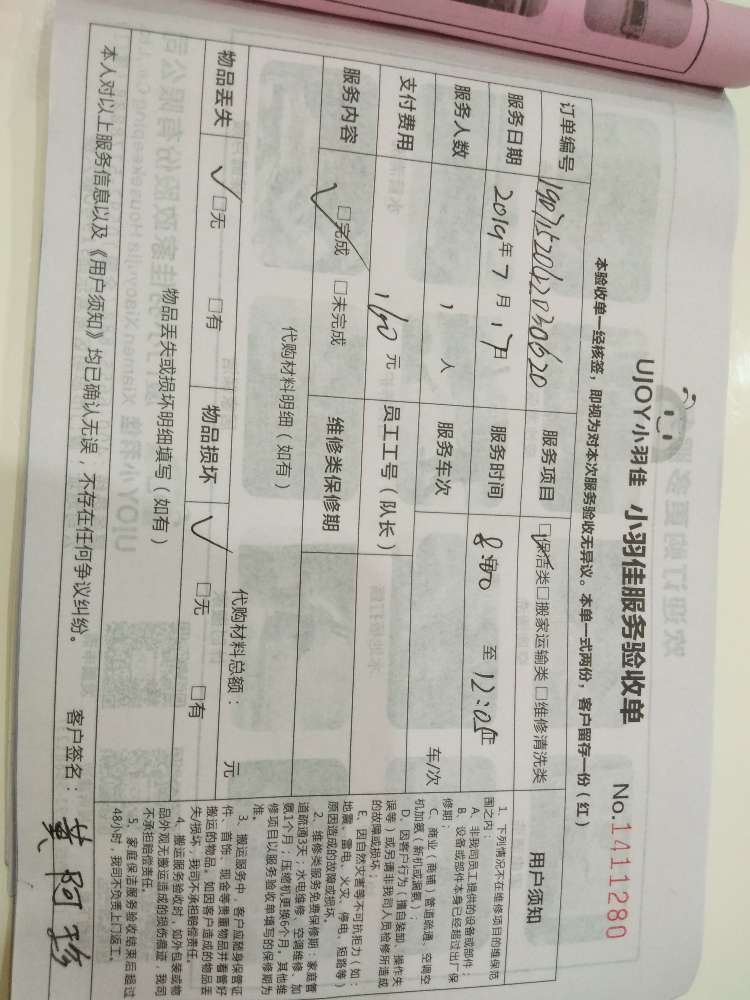 UJOY小羽佳 小羽佳服务验收单 No.1411280
本验收单一经核签，即视为对本次服务验收无异议。本单一式两份，客户留存一份（红）
订单编号 服务项目 □保洁类□搬家运输类 □维修清洗类
服务日期 2019年7月17日 服务时间 8:00 至 12:05止
服务人数 1 人 服务车次 车/次
支付费用 160 元 员工工号（队长）
服务内容 □完成 □未完成 维修类保修期
代购材料明细（如有） 代购材料总额： 元
物品丢失 □无 □有 物品损坏 □无 □有
物品丢失或损坏明细填写（如有）
本人对以上服务信息以及《用户须知》均已确认无误，不存在任何争议纠纷。 客户签名：黄阿珍
用户须知
1、下列情况不在维修项目的维保范
围之内：
A、非我司员工提供的设备或部件；
B、设备或部件本身已经超过出厂保
修期；
C、商业（商铺）管道疏通、空调空
机加氨、新机或漏氨）；
D、因客户行为（擅自装卸、操作失
误等）或另请非我司人员检修所造成
的故障或损坏；
E、因自然灾害等不可抗拒力（如：
地震、雷电、火灾、停电、短路等）
原因造成的故障或损坏。
2、维修类服务免费保修期：家庭管
道疏通3天；水电维修、空调维修、加
氨1个月；压缩机更换6个月。其他维
修项目以服务验收单填写的保修期为
准。
3、搬运服务中，客户应随身保管证
件、首饰、现金等贵重物品并看管好
搬运的物品。如因客户造成的物品丢
失/损坏，我司不承担赔偿责任。
4、搬运服务验收时，如外包装或物
品外观无搬运造成的损伤痕迹，我司
不承担赔偿责任。
5、家庭保洁服务验收结束后超过
48小时，我司不负责上门返工。